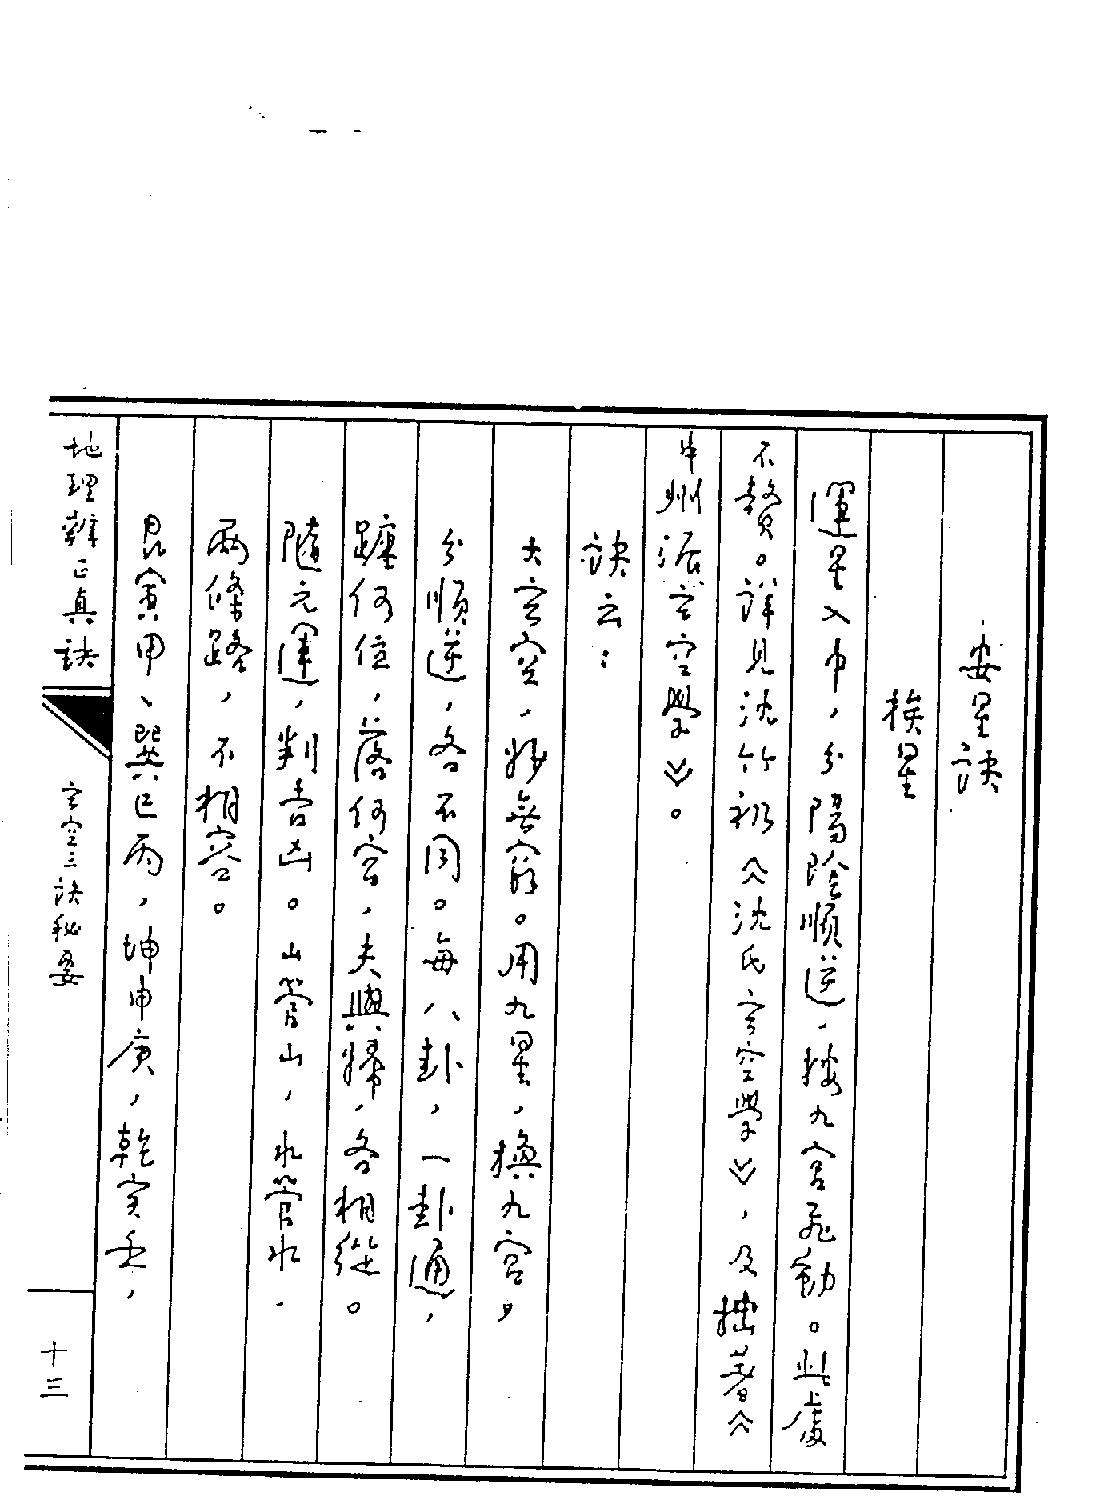 安星訣
挨星
運星入中，分陽陰順逆，按九宮飛動。此處
不贅。詳見沈竹礽《沈氏玄空學》，及拙著《
中州派玄空學》。
訣云：
大玄空，妙無窮。用九星，換九宮，
分順逆，各不同。每八卦，一卦通，
躔何位，落何宮，夫與婦，各相從。
隨元運，判吉凶。山管山，水管水，
兩條路，不相容。
艮寅甲、巽巳丙，坤申庚，乾亥壬，
地理辨正真訣
玄空三訣秘要
十三